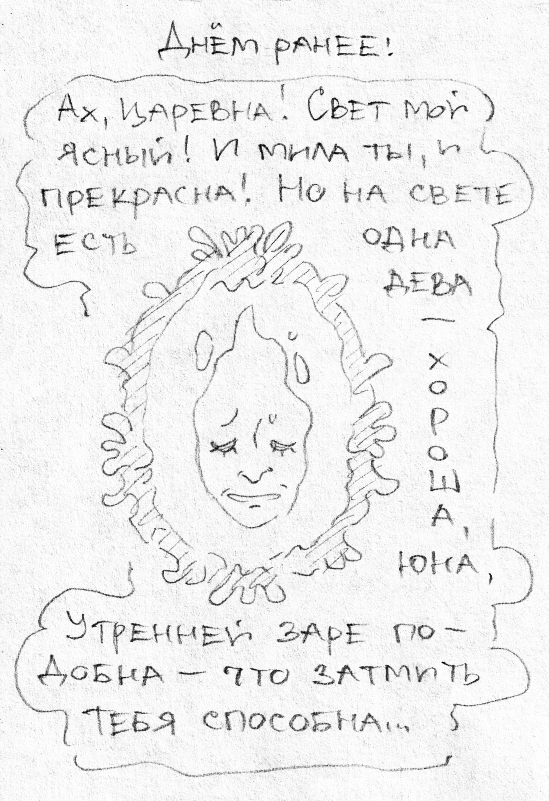 Днём ранее!
Ах, царевна! Свет мой
ясный! И мила ты, и
прекрасна! Но на свете
есть одна
дева
—
хороша,
юна,
утренней заре по-
добна — что затмить
тебя способна...